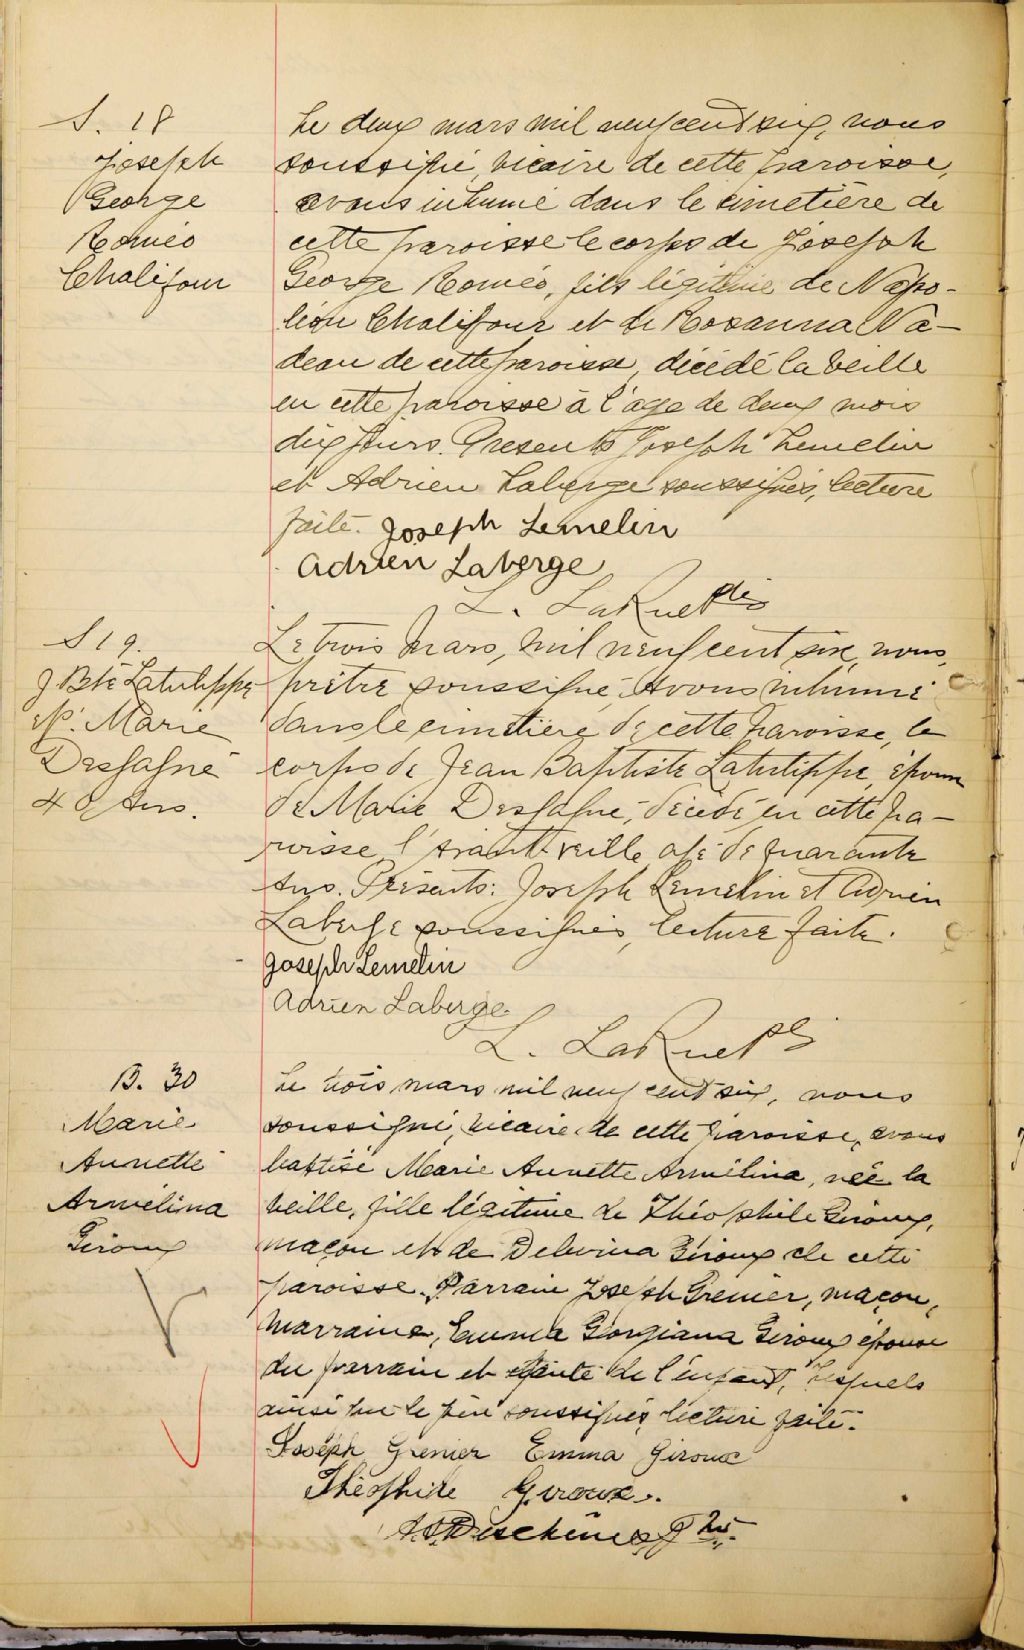 S. 18
Joseph
George
Roméo
Chalifour
Le deux mars mil neuf cent six, nous
soussigné, vicaire de cette paroisse,
avons inhumé dans le cimetière de
cette paroisse le corps de Joseph
George Roméo, fils légitime de Napo-
léon Chalifour et de Rosanna Na-
deau de cette paroisse, décédé la veille
en cette paroisse à l'âge de deux mois
dix jours. Présents Joseph Lemelin
et Adrien Laberge soussignés, lecture
faite. Joseph Lemelin
Adrien Laberge
L. LaRue ptre
S 19.
J Bte Latulippe
ép. Marie
Desgagné
40 Ans.
Le trois Mars, mil neuf cent six, nous,
prêtre soussigné, Avons inhumé
dans le cimetière de cette paroisse, le
corps de Jean Baptiste Latulippe, époux
de Marie Desgagné, décédé en cette pa-
roisse l'avant-veille, agé de quarante
Ans. Présents: Joseph Lemelin et Adrien
Laberge soussignés, lecture faite.
Joseph Lemelin
Adrien Laberge
L. LaRue
B. 30
Marie
Annette
Armélina
Giroux
Le trois mars mil neuf cent six, nous
soussigné, vicaire de cette paroisse, avons
baptisé Marie Annette Armélina, née la
veille, fille légitime de Théophile Giroux,
maçon et de Delvina Giroux de cette
paroisse. Parrain Joseph Grenier, maçon,
marraine, Emma Gorgiana Giroux épouse
du parrain et tante de l'enfant, lesquels
ainsi que le père soussignés, lecture faite.
Joseph Grenier Emma Giroux
Théophile Giroux.
Deschênes Ptre